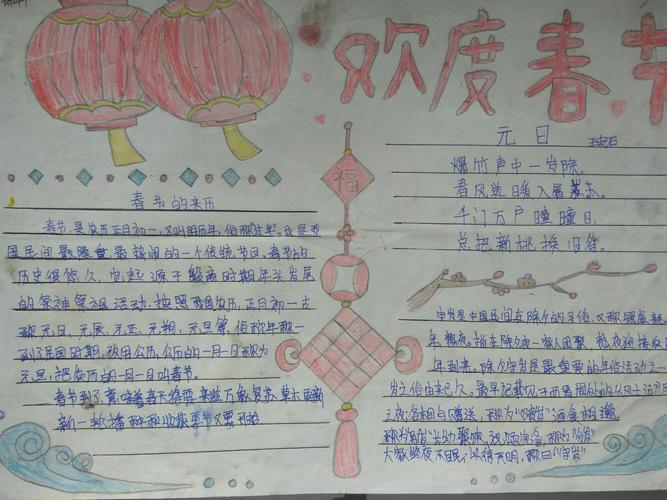 欢度春节
福
春节的来历
春节,是农历正月初一,又叫阴历年,俗称"过年"。这是我
国民间最隆重最热闹的一个传统节日。春节的
历史很悠久,它起源于殷商时期年头岁尾
的祭神祭祖活动.按照我国农历,正月初一古
称元日、元辰、元正、元朔、元旦等,俗称年初一
到了民国时期,改用公历,公历的一月一日称为
元旦,把农历的一月一日叫春节。
春节到了,意味着春天将要来临,万象复苏草木更新
新一轮播种和收获季节又要开始
元日
王安石
爆竹声中一岁除,
春风送暖入屠苏.
千门万户曈曈日,
总把新桃换旧符。
守岁是中国民间在除夕的习俗,又称照虚耗
年、熬夜。指在除夕夜一家人团聚,熬夜迎接农历
年到来。除夕守岁是最重要的年俗活动之一
岁之俗由来已久。最早记载见于西晋周处的《风土志》
之夜各相与赠送,称为"馈岁"酒食相邀
称为"别岁"长幼聚饮,祝颂完备,称为"分岁"
大家终夜不眠,以待天明,称曰"守岁"